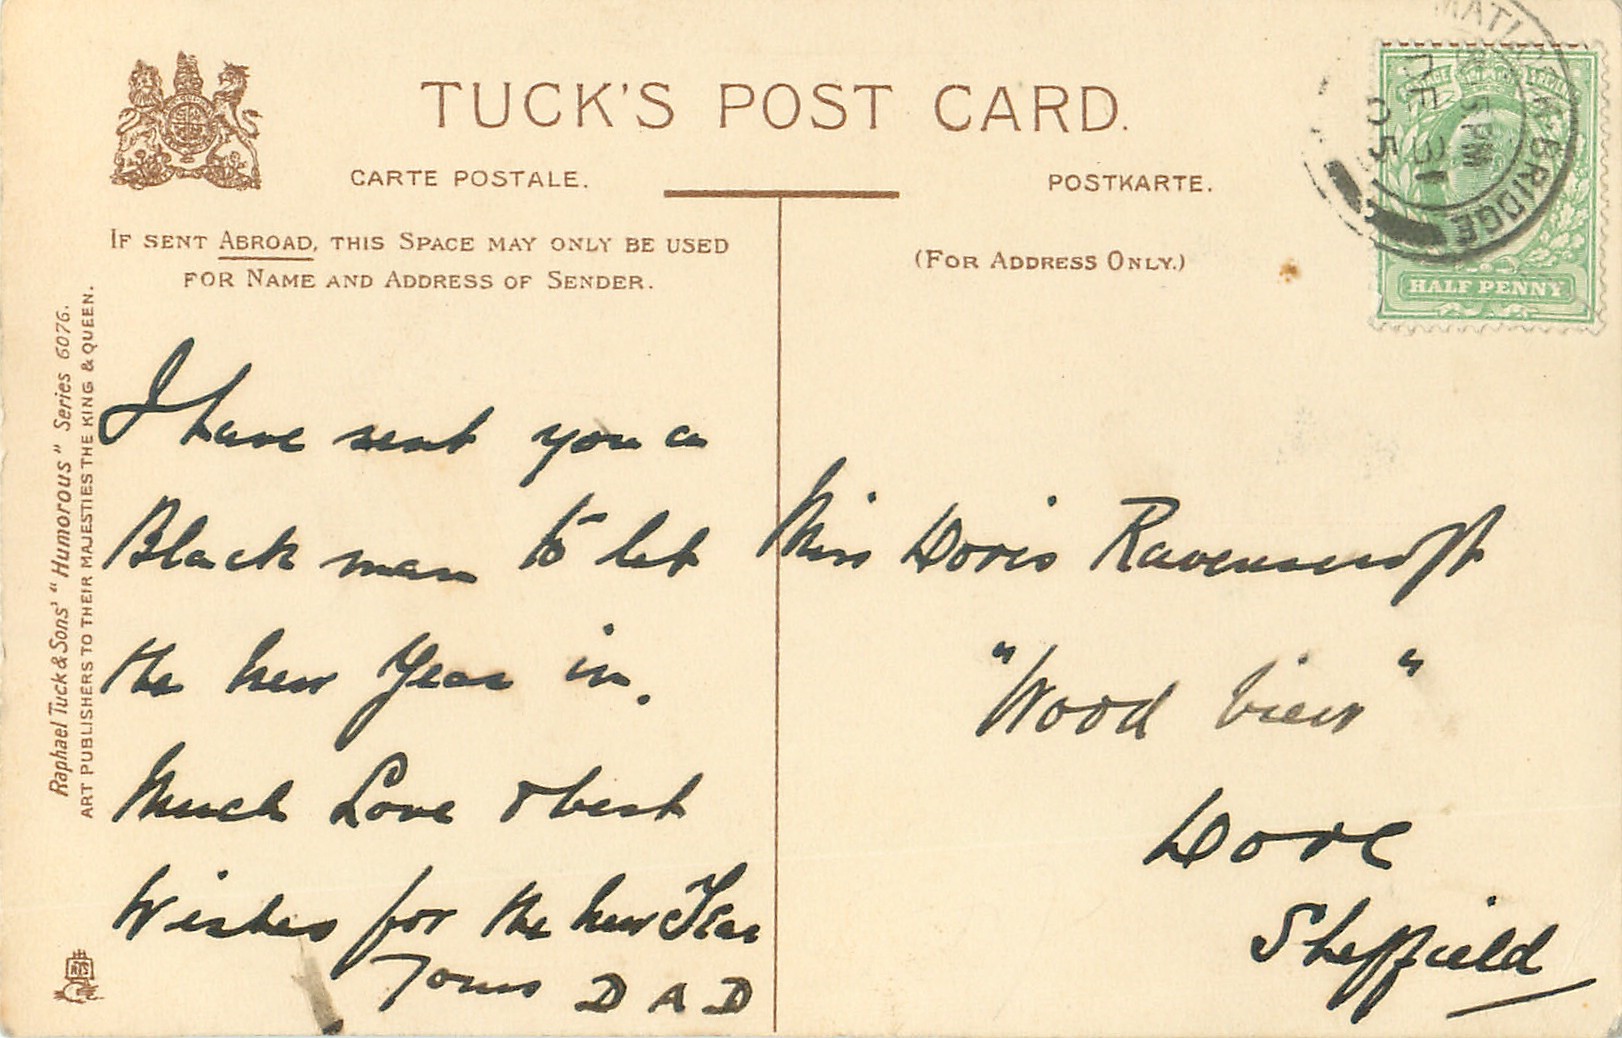 TUCK'S POST CARD.
CARTE POSTALE.
POSTKARTE.
IF SENT ABROAD, THIS SPACE MAY ONLY BE USED
FOR NAME AND ADDRESS OF SENDER.
(FOR ADDRESS ONLY.)
Raphael Tuck & Sons' "Humorous" Series 6076.
ART PUBLISHERS TO THEIR MAJESTIES THE KING & QUEEN.
I have sent you a
Black man to let
the new Year in.
Much Love & best
Wishes for the new Year
Yours DAD
Miss Doris Ravenscroft
"Wood View"
Dore
Sheffield
HALF PENNY
BRIDGE
5 PM
DE 31
05